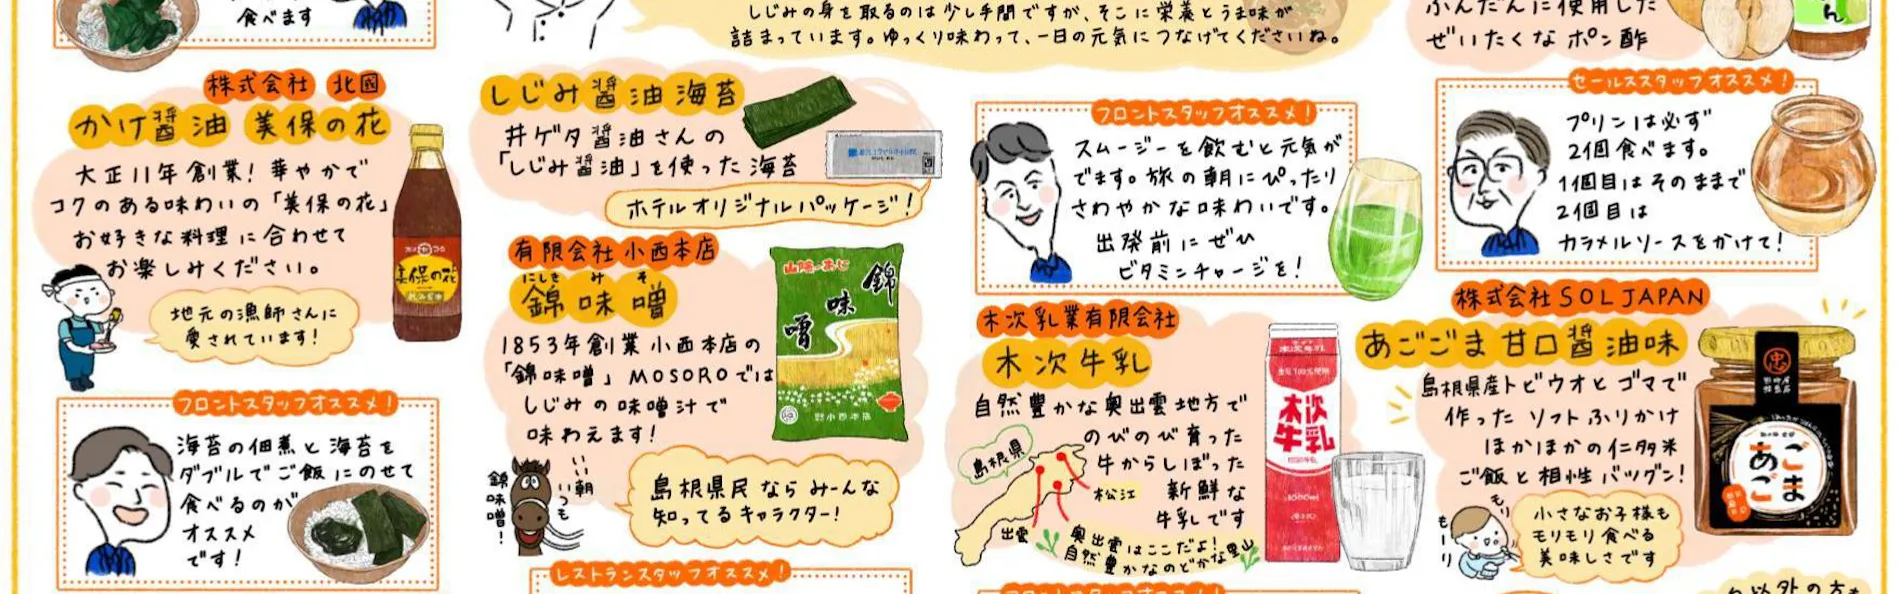 食べます
株式会社 北國
かけ醤油 美保の花
大正11年創業！華やかで
コクのある味わいの「美保の花」
お好きな料理に合わせて
お楽しみください。
地元の漁師さんに
愛されています！
美保の花
フロントスタッフオススメ！
海苔の佃煮と海苔を
ダブルでご飯にのせて
食べるのが
オススメ
です！
しじみの身を取るのは少し手間ですが、そこに栄養とうま味が
詰まっています。ゆっくり味わって、一日の元気につなげてくださいね。
しじみ醤油海苔
井ゲタ醤油さんの
「しじみ醤油」を使った海苔
ホテルオリジナルパッケージ！
有限会社小西本店
にしき み そ
錦味噌
1853年創業小西本店の
「錦味噌」MOSOROでは
しじみの味噌汁で
味わえます！
山陰のあじ
錦
味
噌
小西本店
いい朝
いつも
錦味噌！
島根県民ならみーんな
知ってるキャラクター！
レストランスタッフオススメ！
フロントスタッフオススメ！
スムージーを飲むと元気が
でます。旅の朝にぴったり
さわやかな味わいです。
出発前にぜひ
ビタミンチャージを！
木次乳業有限会社
木次牛乳
自然豊かな奥出雲地方で
のびのび育った
牛からしぼった
新鮮な
牛乳です
島根県
松江
出雲
奥出雲はここだよ！
自然豊かなのどかな里山
木次牛乳
木次
牛乳
1000ml
フロントスタッフオススメ！
ふんだんに使用した
ぜいたくなポン酢
セールススタッフオススメ！
プリンは必ず
2個食べます。
1個目はそのままで
2個目は
カラメルソースをかけて！
株式会社SOLJAPAN
あごごま甘口醤油味
島根県産トビウオとゴマで
作ったソフトふりかけ
ほかほかの仁多米
ご飯と相性バツグン！
もりもーり
小さなお子様も
モリモリ食べる
美味しさです
ごま
あご